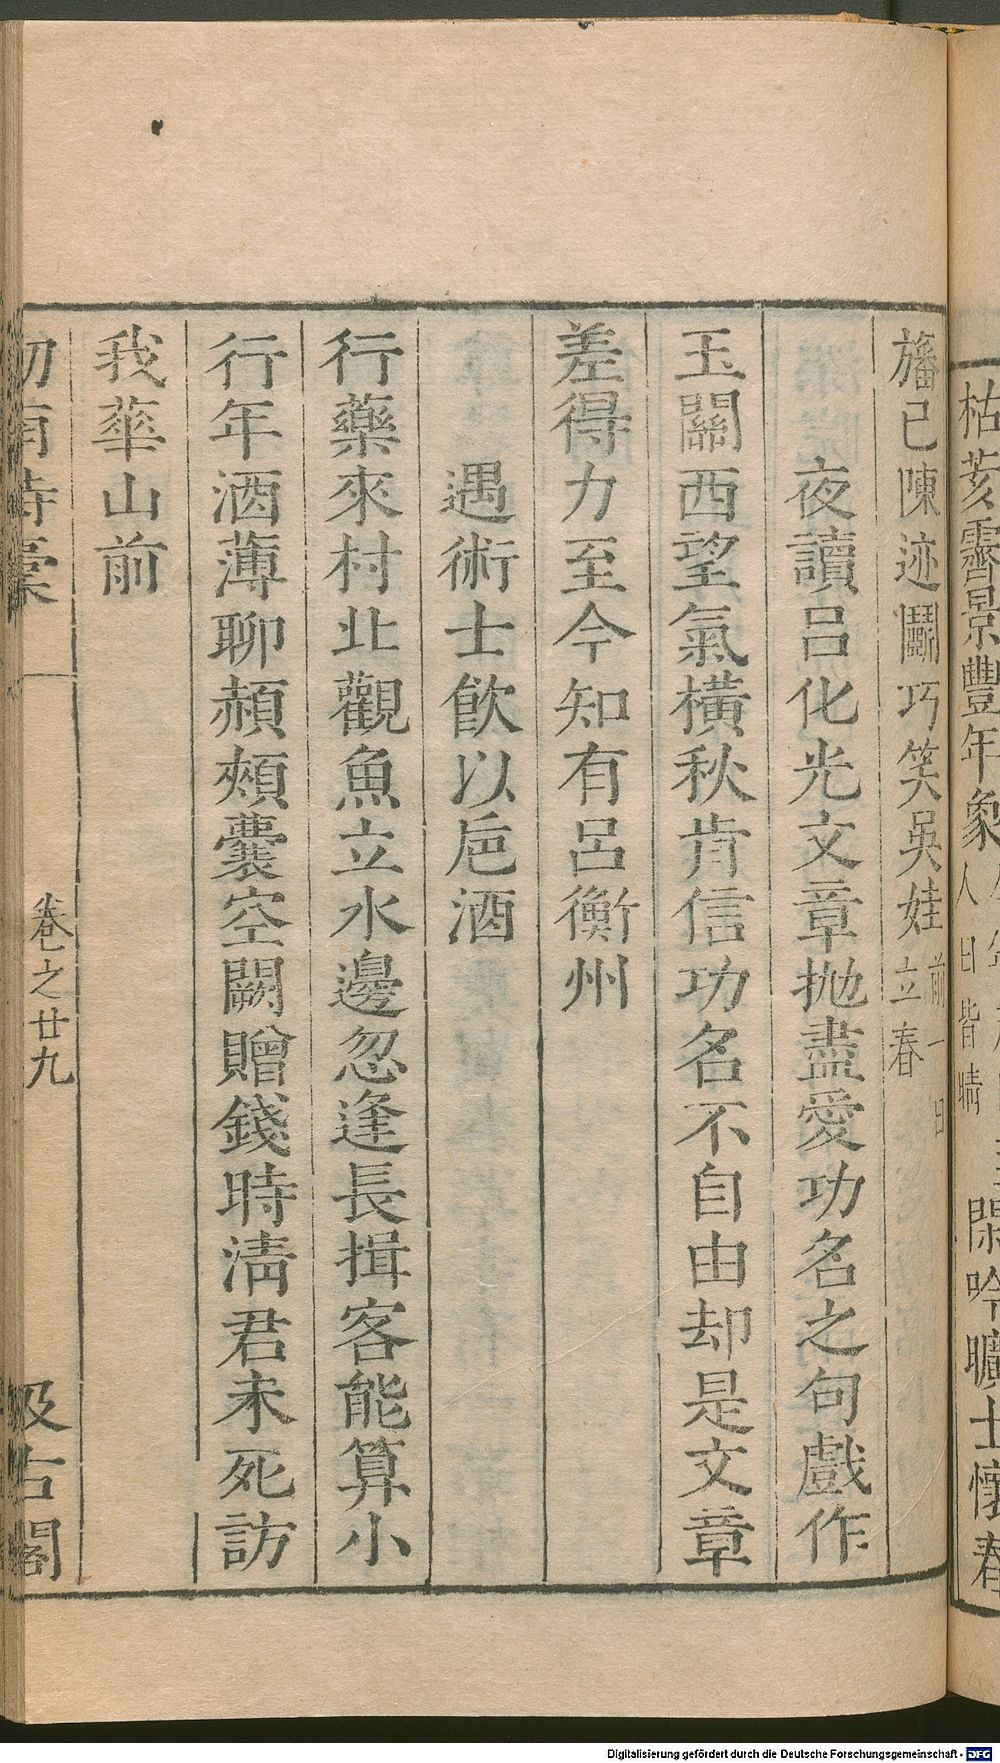 枯荄霽景豐年象 人日皆晴 閑吟曠士懷春
旛已陳迹鬭巧笑吳娃 前一日立春
夜讀呂化光文章拋盡愛功名之句戲作
玉關西望氣橫秋肯信功名不自由却是文章
差得力至今知有呂衡州
遇術士飲以卮酒
行藥來村北觀魚立水邊忽逢長揖客能算小
行年酒薄聊頳頰囊空闕贈錢時淸君未死訪
我華山前
劒南詩稾 卷之廿九 汲古閣
Digitalisierung gefördert durch die Deutsche Forschungsgemeinschaft - DFG